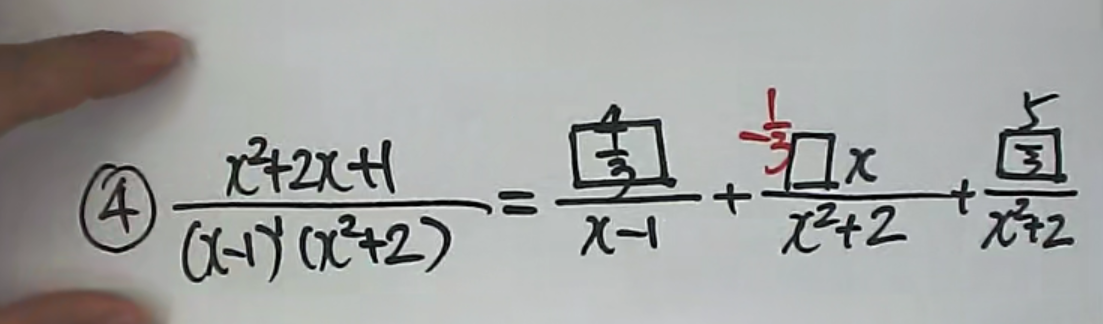 ④ \frac{x²+2x+1}{(x-1)¹(x²+2)} = \frac{\boxed{\frac{4}{3}}}{x-1} + \frac{-\frac{1}{3}□x}{x²+2} + \frac{\boxed{\frac{5}{3}}}{x²+2}